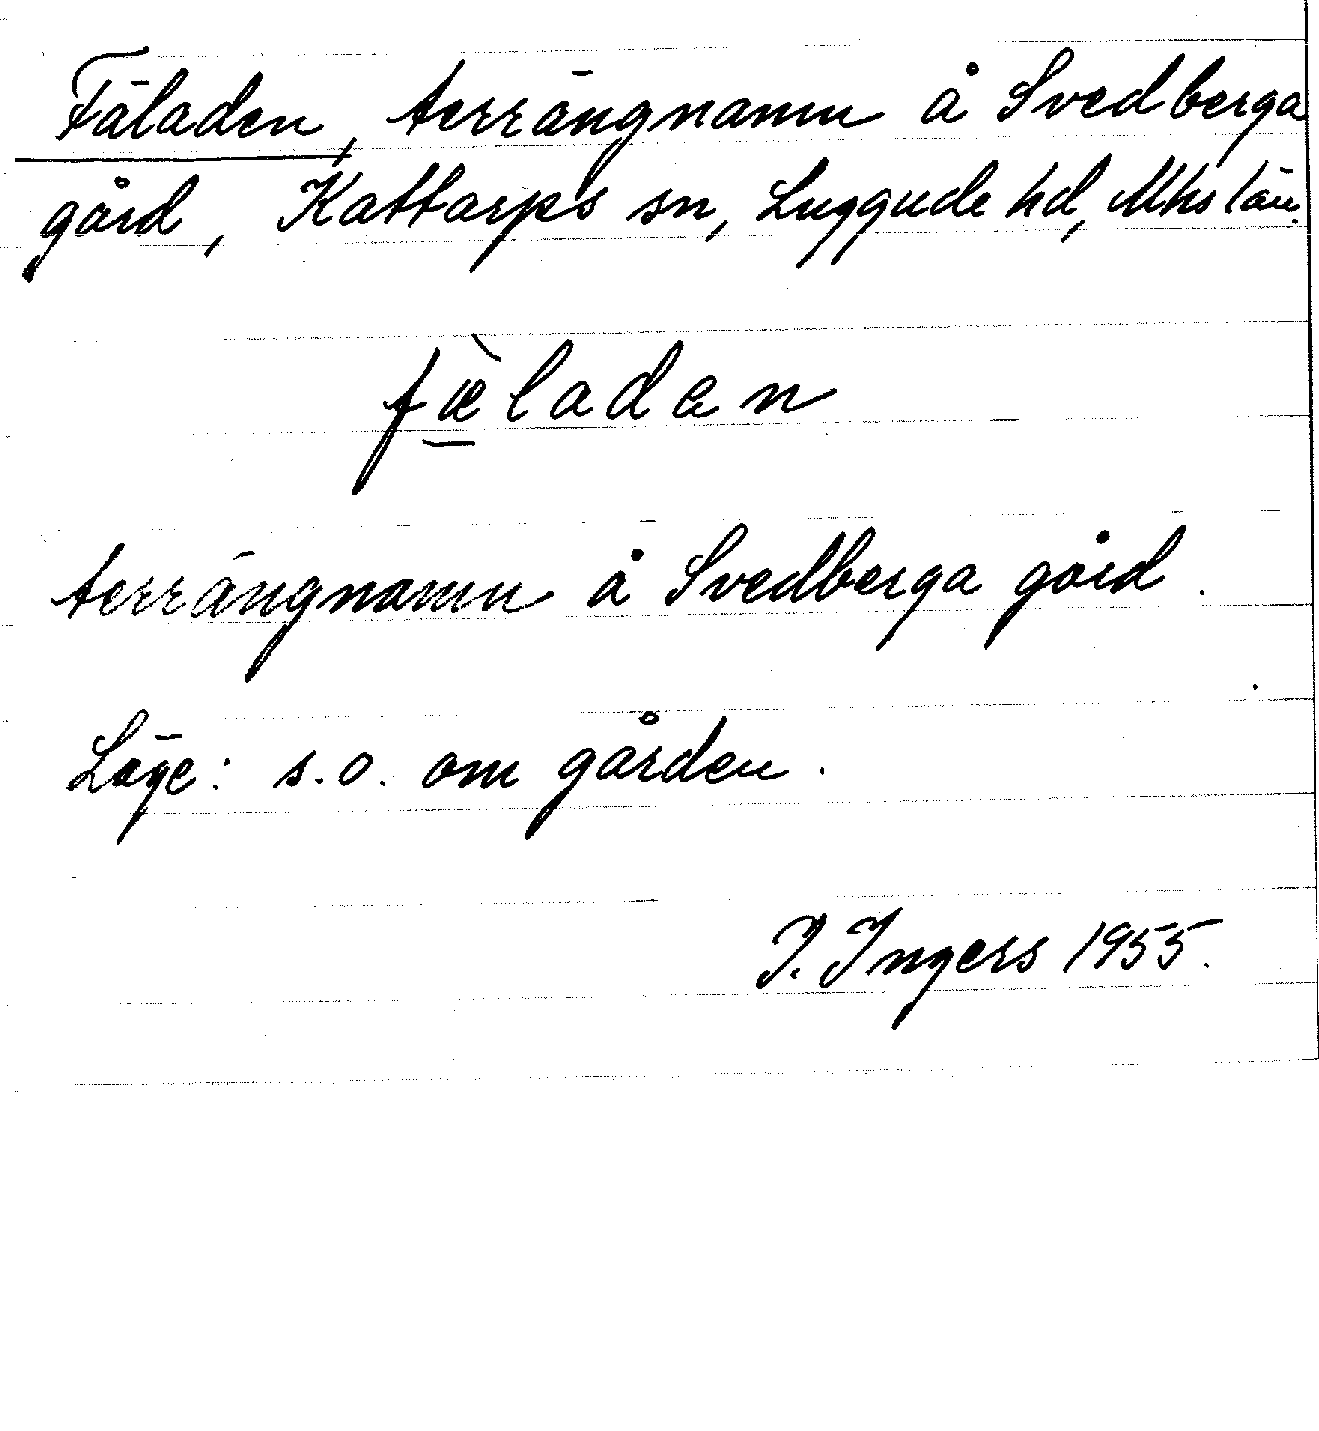 Fäladen, terrängnamn å Svedberga
gård, Kattarps sn, Luggude hd, Mhs län.
fæ̱̀ladan
terrängnamn å Svedberga gård.
Läge: s.o. om gården.
I. Ingers 1955.